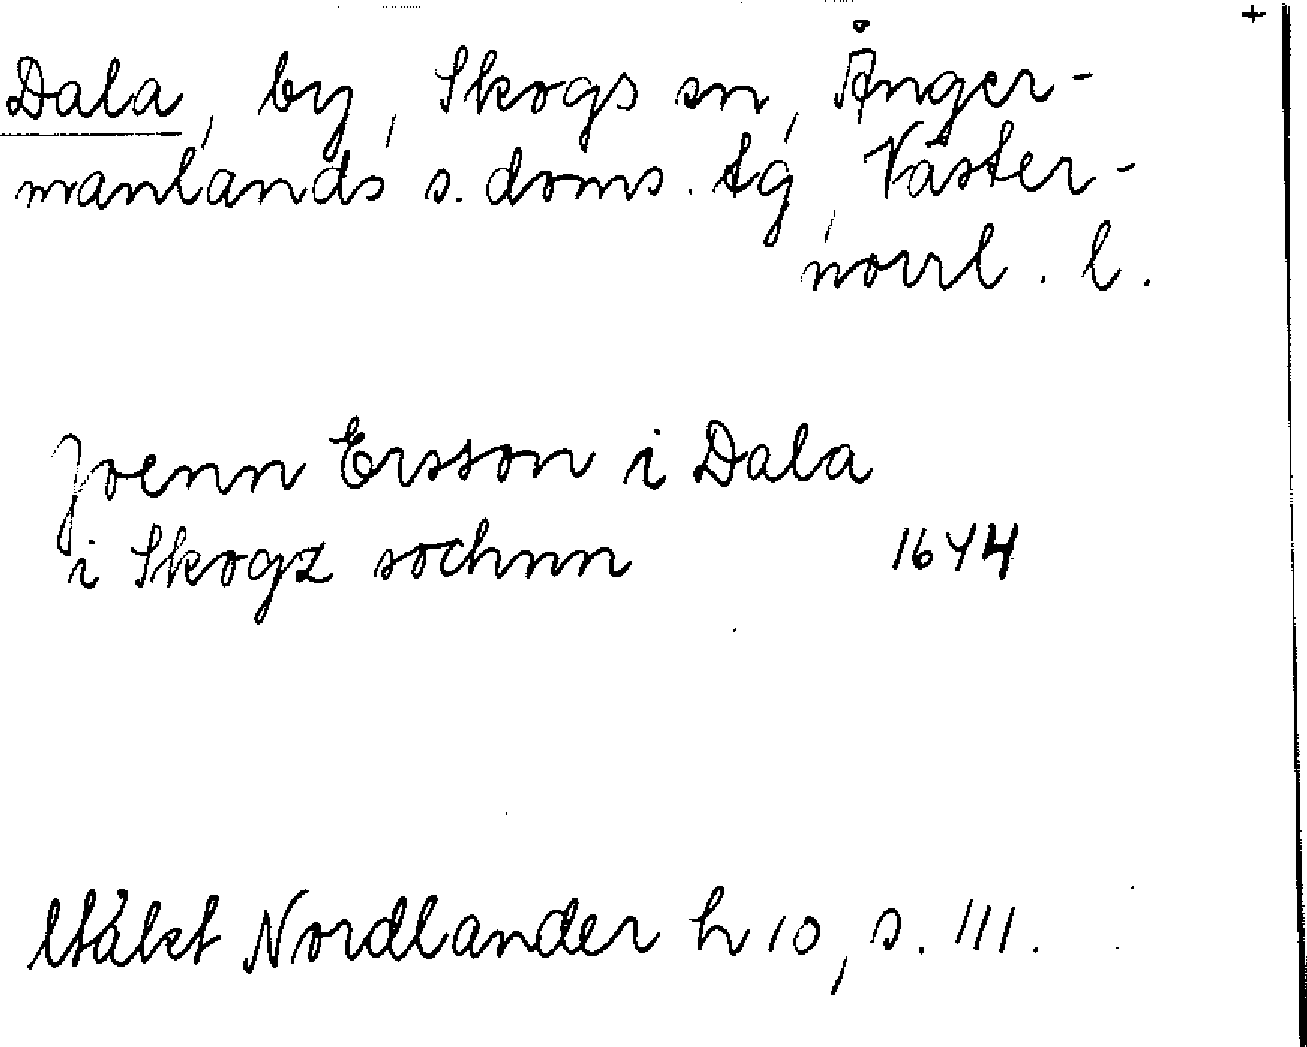 +
Dala, by, Skogs sn, Ånger-
manlands s. doms. tg, Väster-
norrl. l.
Joenn Ersson i Dala
i Skogz sochnn 1644
Utdekt Nordlander h 10, s. 111.